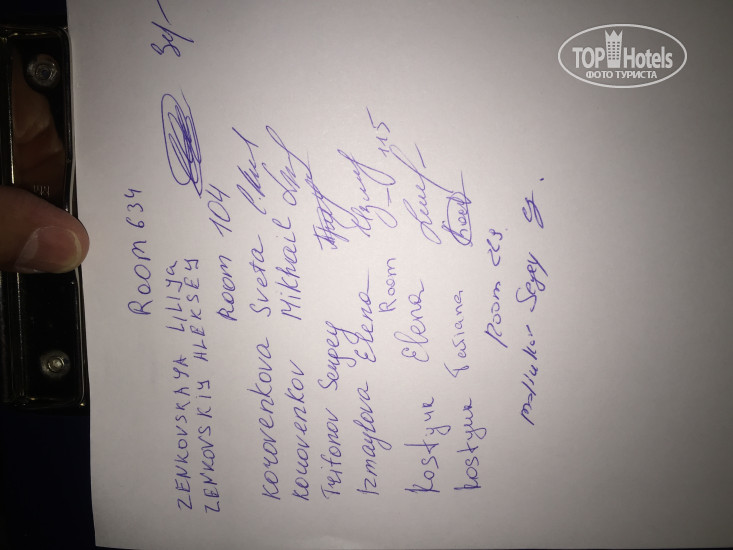 TOP Hotels
ФОТО ТУРИСТА
Room 634
ZENKOVSKAYA LILIYA
ZENKOVSKIY ALEKSEY
Room 104
Korovenkova Sveta
Korovenkov Mikhail
Trifonov Sergey
Izmaylova Elena
Room 115
Kostyna Elena
Kostyna Tatiana
Room
Sergey